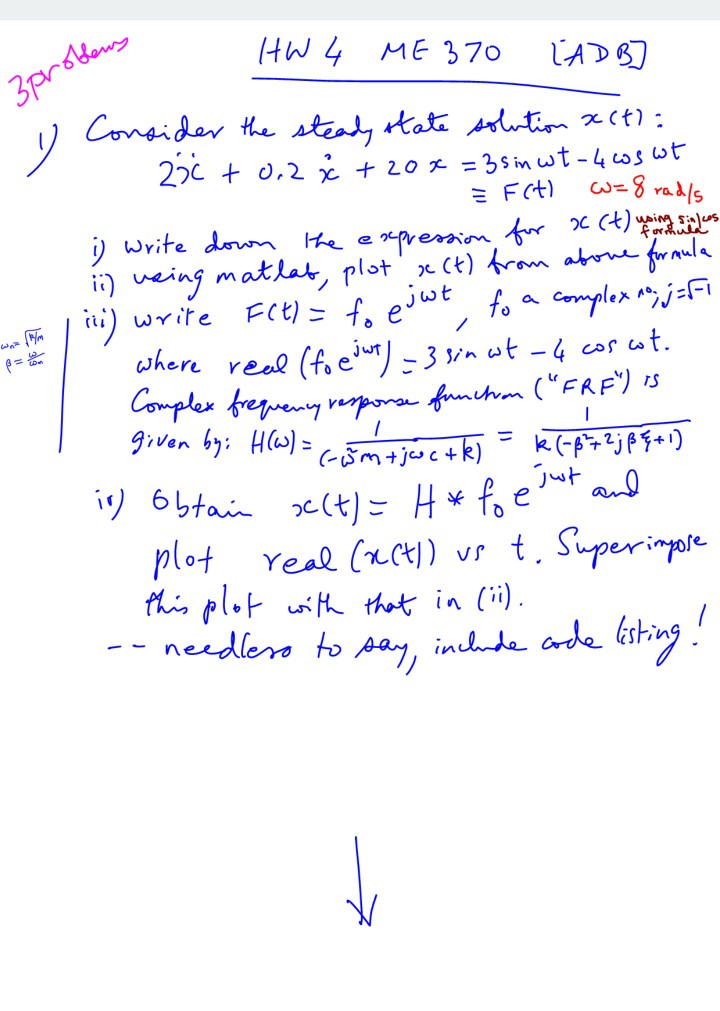 3 problems
HW 4 ME 370 [ADB]
1) Consider the steady state solution x(t):
2ẍ + 0.2 ẋ + 20 x = 3 sin ωt - 4 cos ωt
≡ F(t) ω = 8 rad/s
i) write down the expression for x(t) using sin/cos formula
ii) using matlab, plot x(t) from above formula
iii) write F(t) = f₀ e^{jωt}, f₀ a complex no; j = √-1
ωn = √k/m
β = ω/ωn
where real (f₀ e^{jωt}) = 3 sin ωt - 4 cos ωt.
Complex frequency response function ("FRF") is
given by: H(ω) = 1/(-ω²m + jωc + k) = 1/k(-β² + 2jβξ + 1)
iv) Obtain x(t) = H * f₀ e^{jωt} and
plot real (x(t)) vs t. Superimpose
this plot with that in (ii).
-- needless to say, include code listing!